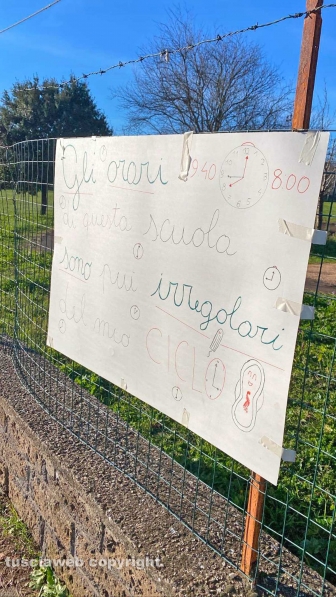 Gli orari 9:40 8:00
di questa scuola
sono più irregolari
del mio CICLO
tusciaweb copyright